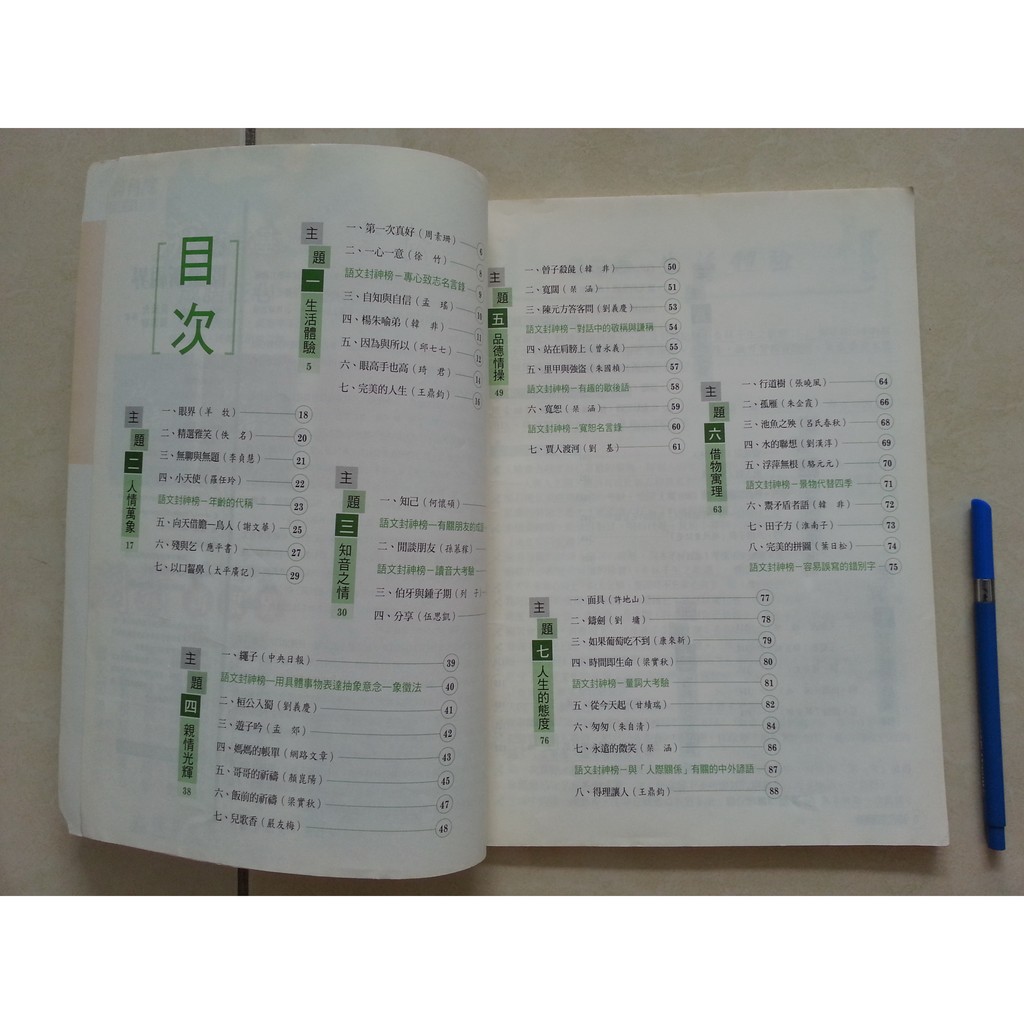 目次
主題一 生活體驗 5
一、第一次真好(周素珊) 6
二、一心一意(徐 竹) 8
語文封神榜－專心致志名言錄 9
三、自知與自信(孟 瑤) 10
四、楊朱喻弟(韓 非) 11
五、因為與所以(邱七七) 12
六、眼高手也高(琦 君) 14
七、完美的人生(王鼎鈞) 16
主題二 人情萬象 17
一、眼界(羊 牧) 18
二、精選雅笑(佚 名) 20
三、無聊與無題(李貞慧) 21
四、小天使(羅任玲) 22
語文封神榜－年齡的代稱 23
五、向天借膽一鳥人(謝文華) 25
六、殘與乞(應平書) 27
七、以口齧鼻(太平廣記) 29
主題三 知音之情 30
一、知己(何懷碩)
語文封神榜－有關朋友的成
二、閒談朋友(孫慕稼)
語文封神榜－讀音大考驗
三、伯牙與鍾子期(列 子)
四、分享(伍思凱)
主題四 親情光輝 38
一、繩子(中央日報) 39
語文封神榜－用具體事物表達抽象意念－象徵法 40
二、桓公入蜀(劉義慶) 41
三、遊子吟(孟 郊) 42
四、媽媽的帳單(網路文章) 43
五、哥哥的祈禱(顏崑陽) 45
六、飯前的祈禱(梁實秋) 47
七、兒歌香(嚴友梅) 48
主題五 品德情操 49
一、曾子殺彘(韓 非) 50
二、寬闊(杏 涵) 51
三、陳元方答客問(劉義慶) 53
語文封神榜－對話中的敬稱與謙稱 54
四、站在肩膀上(曾永義) 55
五、里甲與強盜(朱國楨) 57
語文封神榜－有趣的歇後語 58
六、寬恕(杏 涵) 59
語文封神榜－寬恕名言錄 60
七、賈人渡河(劉 基) 61
主題六 借物寓理 63
一、行道樹(張曉風) 64
二、孤雁(朱企霞) 66
三、池魚之殃(呂氏春秋) 68
四、水的聯想(劉漢淳) 69
五、浮萍無根(駱元元) 70
語文封神榜－景物代替四季 71
六、鬻矛盾者語(韓 非) 72
七、田子方(淮南子) 73
八、完美的拼圖(葉日松) 74
語文封神榜－容易誤寫的錯別字 75
主題七 人生的態度 76
一、面具(許地山) 77
二、鑄劍(劉 墉) 78
三、如果葡萄吃不到(康來新) 79
四、時間即生命(梁實秋) 80
語文封神榜－量詞大考驗 81
五、從今天起(甘績瑞) 82
六、匆匆(朱自清) 84
七、永遠的微笑(杏 涵) 86
語文封神榜－與「人際關係」有關的中外諺語 87
八、得理讓人(王鼎鈞) 88